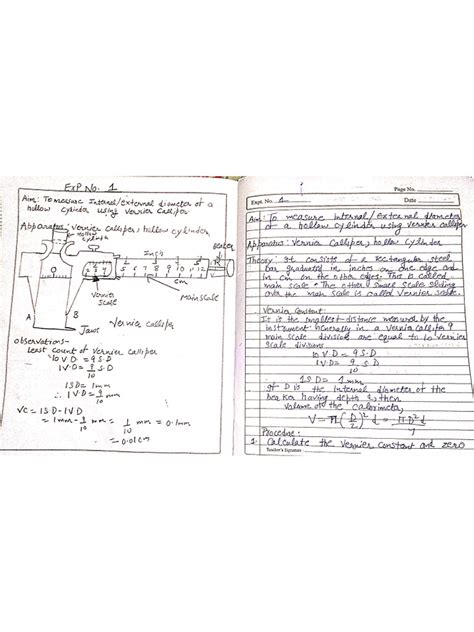 ExP No. 1
Aim: To measure Internal/external diameter of a
hollow cylinder using Vernier Calliper
Apparatus: Vernier Calliper, hollow cylinder
hollow
cylinder
Inch
beaker
cm
Vernier
Scale
Main Scale
A
B
Jaws
Vernier Calliper
observations-
Least count of Vernier Calliper
10 V D = 9 S.D
1 V D = 9/10 S.D
1 S D = 1mm
∴ 1 V D = 9/10 mm
VC = 1 S D - 1 V D
= 1mm - 9/10 mm = 1/10 mm = 0.1mm
= 0.01cm
Page No.
Expt. No. 1
Date
Aim: To measure Internal/External diameter
of a hollow cylinder using vernier calliper
Apparatus: Vernier Calliper, hollow cylinder
Theory: It consists of a rectangular steel
bar graduated in inches on one edge and
in cm on the other edges. This is called
main scale. The other small scale sliding
over the main scale is called Vernier scale.
Vernier Constant:
It is the smallest distance measured by the
instrument. Generally in a vernier calliper 9
main scale divisions are equal to 10 Vernier
Scale divisions.
10 V D = 9 S.D
1 V D = 9/10 S.D
1 S D = 1 mm
of D is the internal diameter of the
beaker having depth d, then
Volume of the calorimeter,
V = π(D/2)² d = πD²d/4
Procedure:
1. Calculate the Vernier constant and zero
Teacher's Signature